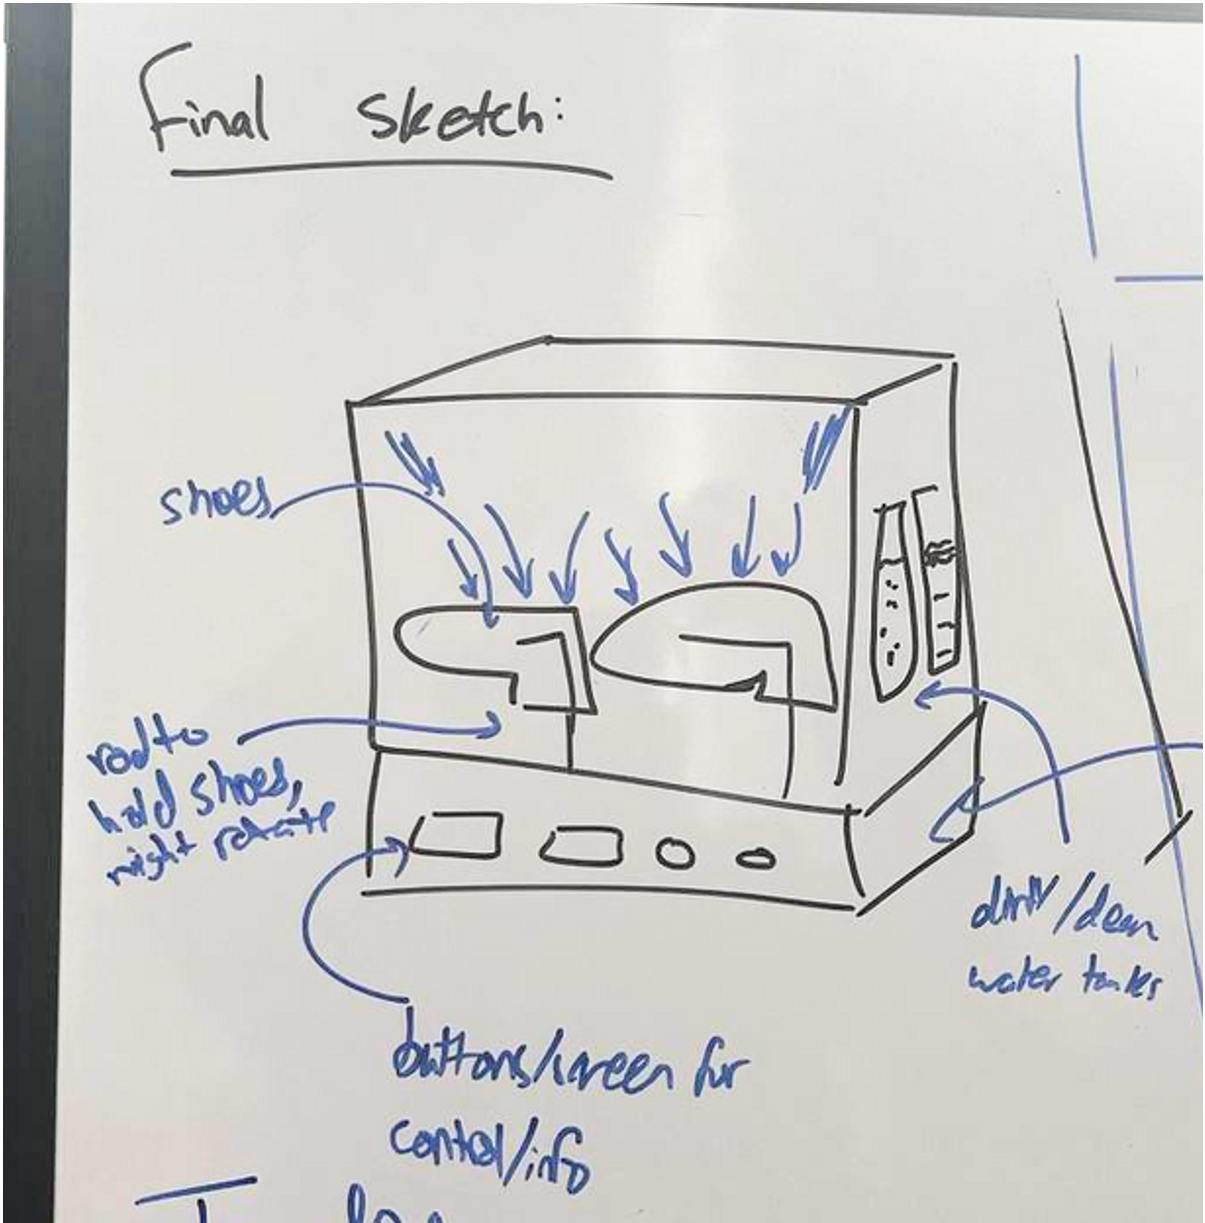 Final Sketch:
shoes
rod to
hold shoes,
might rotate
dirty/clean
water tanks
buttons/screen for
control/info